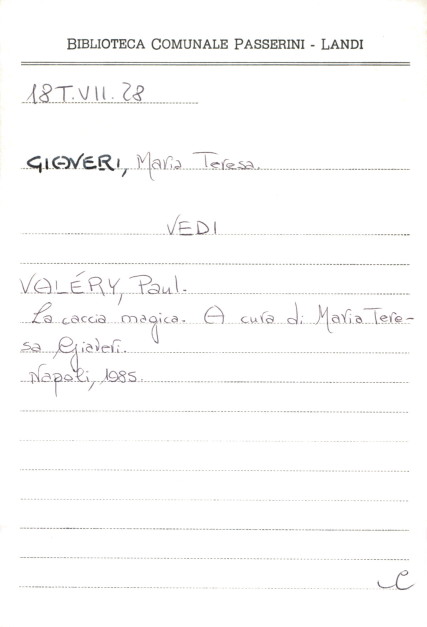 BIBLIOTECA COMUNALE PASSERINI - LANDI
18T.VII.28
GIAVERI, Maria Teresa.
VEDI
VALÉRY, Paul.
La caccia magica. A cura di Maria Tere-
sa Giaveri.
Napoli, 1985.